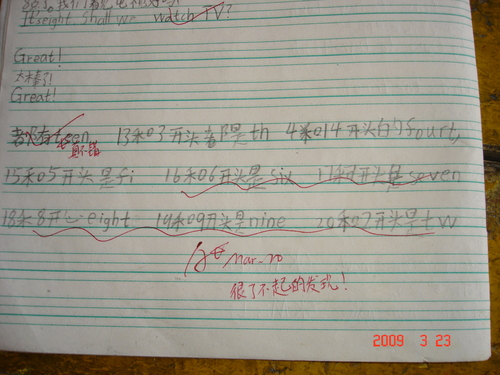 It's eight. Shall we watch TV?
Great!
太棒了!
Great!
都没有teen, 13和03开头都是th 4和014开头的fourt,
真棒
15和05开头是fi 16和06开头是six 17和开头是seven
18和8开 eight 19和09开头是nine 20和0 开头是tw
A Mar. 20
很了不起的发式!
2009 3 23